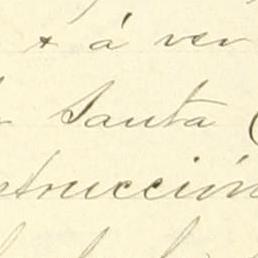 x á ver
Santa (
strucción